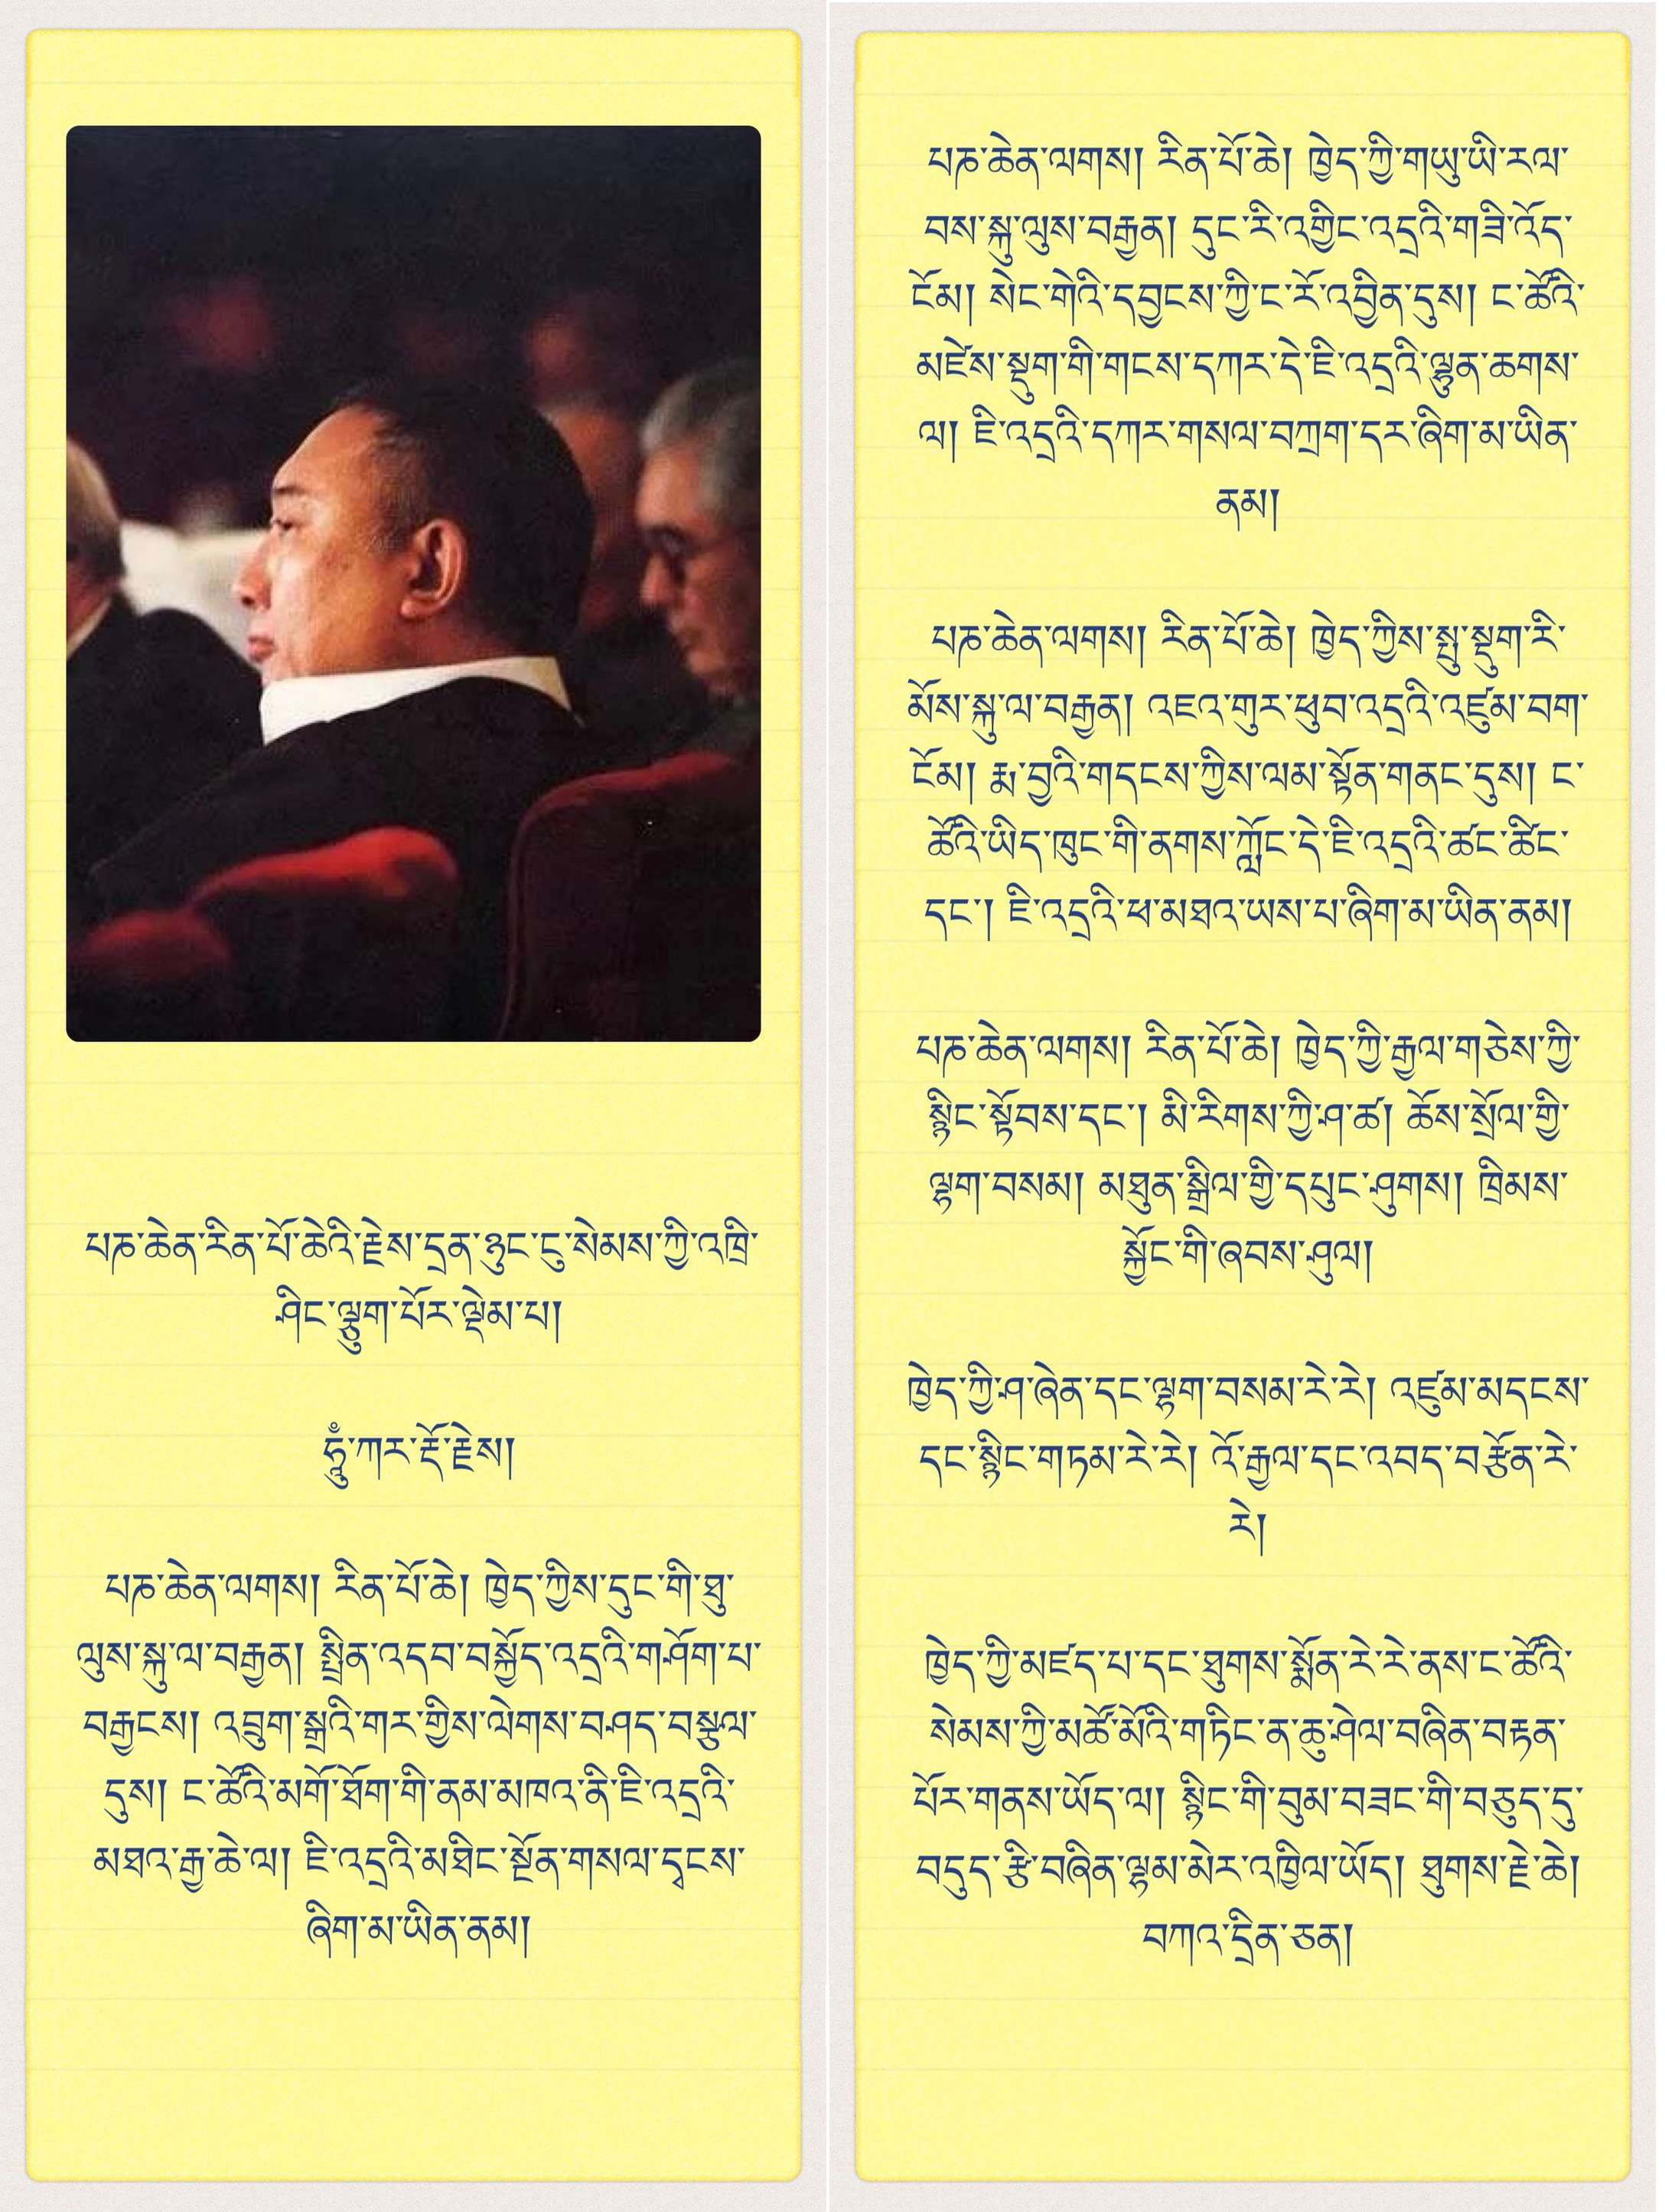 པཎ་ཆེན་རིན་པོ་ཆེའི་རྗེས་དྲན་ཉུང་ངུ་སེམས་ཀྱི་འཁྲི་
ཤིང་ལྷུག་པོར་ལྡེམ་པ།
ཧཱུྃ་ཀར་རྡོ་རྗེས།
པཎ་ཆེན་ལགས། རིན་པོ་ཆེ། ཁྱེད་ཀྱིས་དུང་གི་ཐུ་
ལུས་སྐུ་ལ་བརྒྱན། སྤྲིན་འདབ་བསྐྱོད་འདྲའི་གཤོག་པ་
བརྒྱངས། འབྲུག་སྒྲའི་གར་གྱིས་ལེགས་བཤད་བསྩལ་
དུས། ང་ཚོའི་མགོ་ཐོག་གི་ནམ་མཁའ་ནི་ཇི་འདྲའི་
མཐའ་རྒྱ་ཆེ་ལ། ཇི་འདྲའི་མཐིང་སྔོན་གསལ་དྭངས་
ཞིག་མ་ཡིན་ནམ།
པཎ་ཆེན་ལགས། རིན་པོ་ཆེ། ཁྱེད་ཀྱི་གཡུ་ཡི་རལ་
བས་སྐུ་ལུས་བརྒྱན། དུང་རི་འགྱིང་འདྲའི་གཟི་འོད་
ངོམ། སེང་གེའི་དབྱངས་ཀྱི་ང་རོ་འབྱིན་དུས། ང་ཚོའི་
མཛེས་སྡུག་གི་གངས་དཀར་དེ་ཇི་འདྲའི་ལྷུན་ཆགས་
ལ། ཇི་འདྲའི་དཀར་གསལ་བཀྲག་དར་ཞིག་མ་ཡིན་
ནམ།
པཎ་ཆེན་ལགས། རིན་པོ་ཆེ། ཁྱེད་ཀྱིས་སྤུ་སྡུག་རི་
མོས་སྐུ་ལ་བརྒྱན། འཇའ་གུར་ཕུབ་འདྲའི་འཛུམ་བག་
ངོམ། རྨ་བྱའི་གདངས་ཀྱིས་ལམ་སྟོན་གནང་དུས། ང་
ཚོའི་ཡིད་ཁུང་གི་ནགས་ཀློང་དེ་ཇི་འདྲའི་ཚང་ཚིང་
དང་། ཇི་འདྲའི་ཕ་མཐའ་ཡས་པ་ཞིག་མ་ཡིན་ནམ།
པཎ་ཆེན་ལགས། རིན་པོ་ཆེ། ཁྱེད་ཀྱི་རྒྱལ་གཅེས་ཀྱི་
སྙིང་སྟོབས་དང་། མི་རིགས་ཀྱི་ཤ་ཚ། ཆོས་སྲོལ་གྱི་
ལྷག་བསམ། མཐུན་སྒྲིལ་གྱི་དཔུང་ཤུགས། ཁྲིམས་
སྐྱོང་གི་ཞབས་ཤུལ།
ཁྱེད་ཀྱི་ཤ་ཞེན་དང་ལྷག་བསམ་རེ་རེ། འཛུམ་མདངས་
དང་སྙིང་གཏམ་རེ་རེ། འོ་རྒྱལ་དང་འབད་བརྩོན་རེ་
རེ།
ཁྱེད་ཀྱི་མཛད་པ་དང་ཐུགས་སྨོན་རེ་རེ་ནས་ང་ཚོའི་
སེམས་ཀྱི་མཚོ་མོའི་གཏིང་ན་ཆུ་ཤེལ་བཞིན་བརྟན་
པོར་གནས་ཡོད་ལ། སྙིང་གི་བུམ་བཟང་གི་བཅུད་དུ་
བདུད་རྩི་བཞིན་ལྷམ་མེར་འཁྱིལ་ཡོད། ཐུགས་རྗེ་ཆེ།
བཀའ་དྲིན་ཅན།